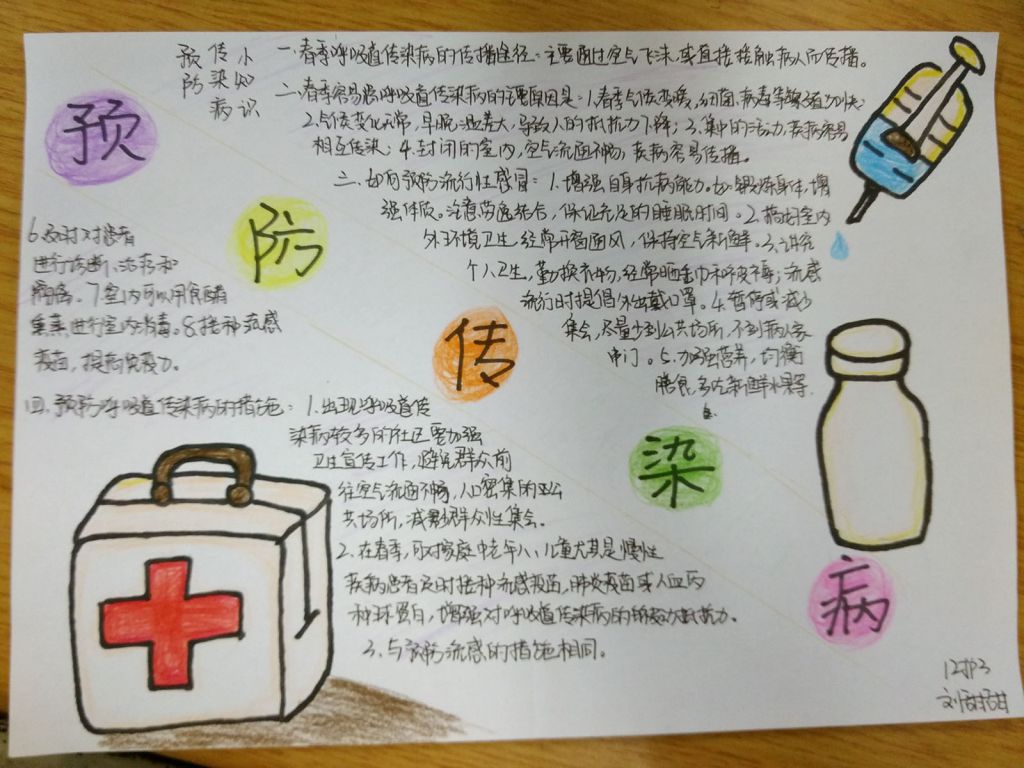 预防
传染病
小知识
预
防
传
染
病
一.春季呼吸道传染病的传播途径:主要通过空气飞沫,或直接接触病人而传播。
二.春季容易患呼吸道传染病的主要原因是:1.春季气候变暖,细菌、病毒等繁殖加快;
2.气候变化无常,早晚温差大,导致人的抵抗力下降;3.集中的活动,疾病容易
相互传染;4.封闭的室内,空气流通不畅,疾病容易传播。
三.如何预防流行性感冒:1.增强自身抗病能力。如锻炼身体,增
强体质。注意劳逸结合,保证充足的睡眠时间。2.搞好室内
外环境卫生,经常开窗通风,保持空气新鲜。3.讲究
个人卫生,勤换衣物,经常晒毛巾和被褥;流感
流行时提倡外出戴口罩。4.暂停或减少
集会,尽量少到公共场所,不到病人家
串门。5.加强营养,均衡
膳食,多吃新鲜水果等
6.及时对患者
进行诊断、治疗和
隔离。7.室内可以用食醋
熏蒸进行室内消毒。8.接种流感
疫苗,提高免疫力。
四.预防呼吸道传染病的措施:1.出现呼吸道传
染病较多的社区要加强
卫生宣传工作,避免群众前
往空气流通不畅,人口密集的公
共场所,减少群众性集会。
2.在春季,可对家庭中老年人、儿童尤其是慢性
疾病患者定时接种流感疫苗,肺炎疫苗或人血丙
种球蛋白,增强对呼吸道传染病的免疫力抵抗力。
3.与预防流感的措施相同。
12护3
刘甜甜